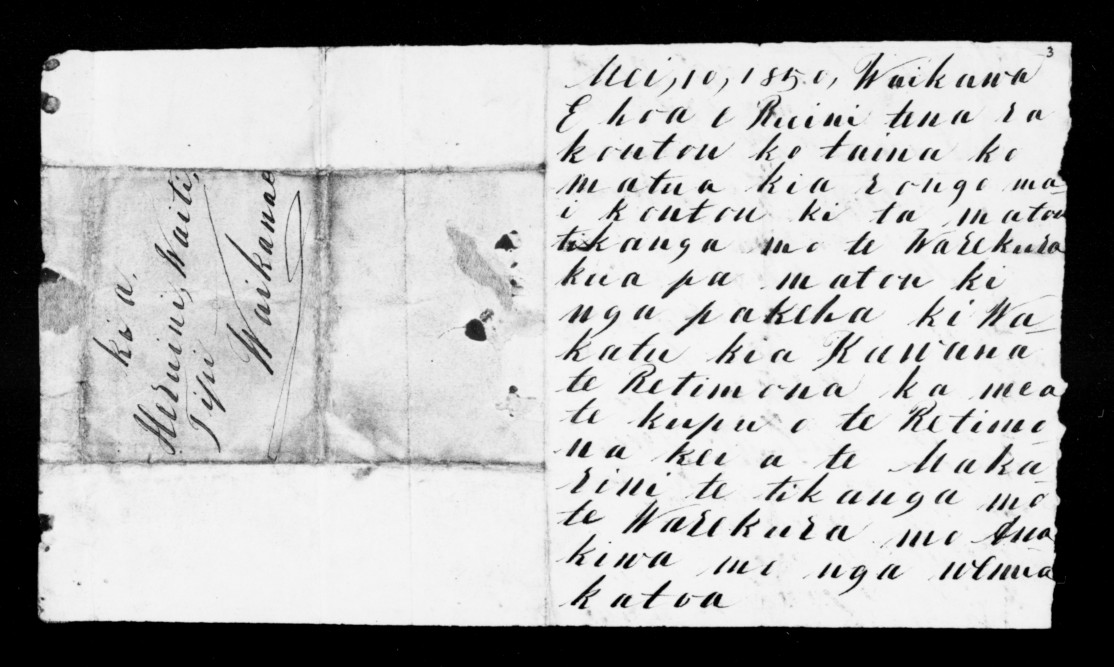 3
Mei, 10, 1850, Waikawa
E hoa e Ruini tena ra
koutou ko taina ko
matua kia rongo ma
i koutou ki ta matou
tikanga mo te Warekura
kua pa matou ki
nga pakeha ki Wa
katu kia Kawana
te Retimona ka mea
te kupu o te Retimo
na kei a te Maka
rini te tikanga mo
te Warekura mo Ana
kiwa mo nga wenua
katoa
ki a.
Waiti,
Tipi
Waikanae